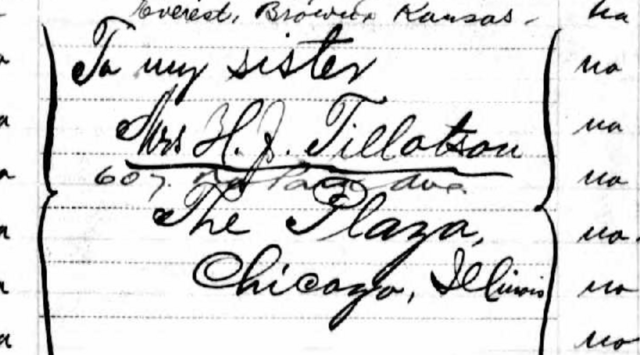 Everest, Brown Kansas.
To my sister
Mrs H. J. Tillotson
607. Ave
The Plaza,
Chicago, Illinois
no
no
no
no
no.
no
no